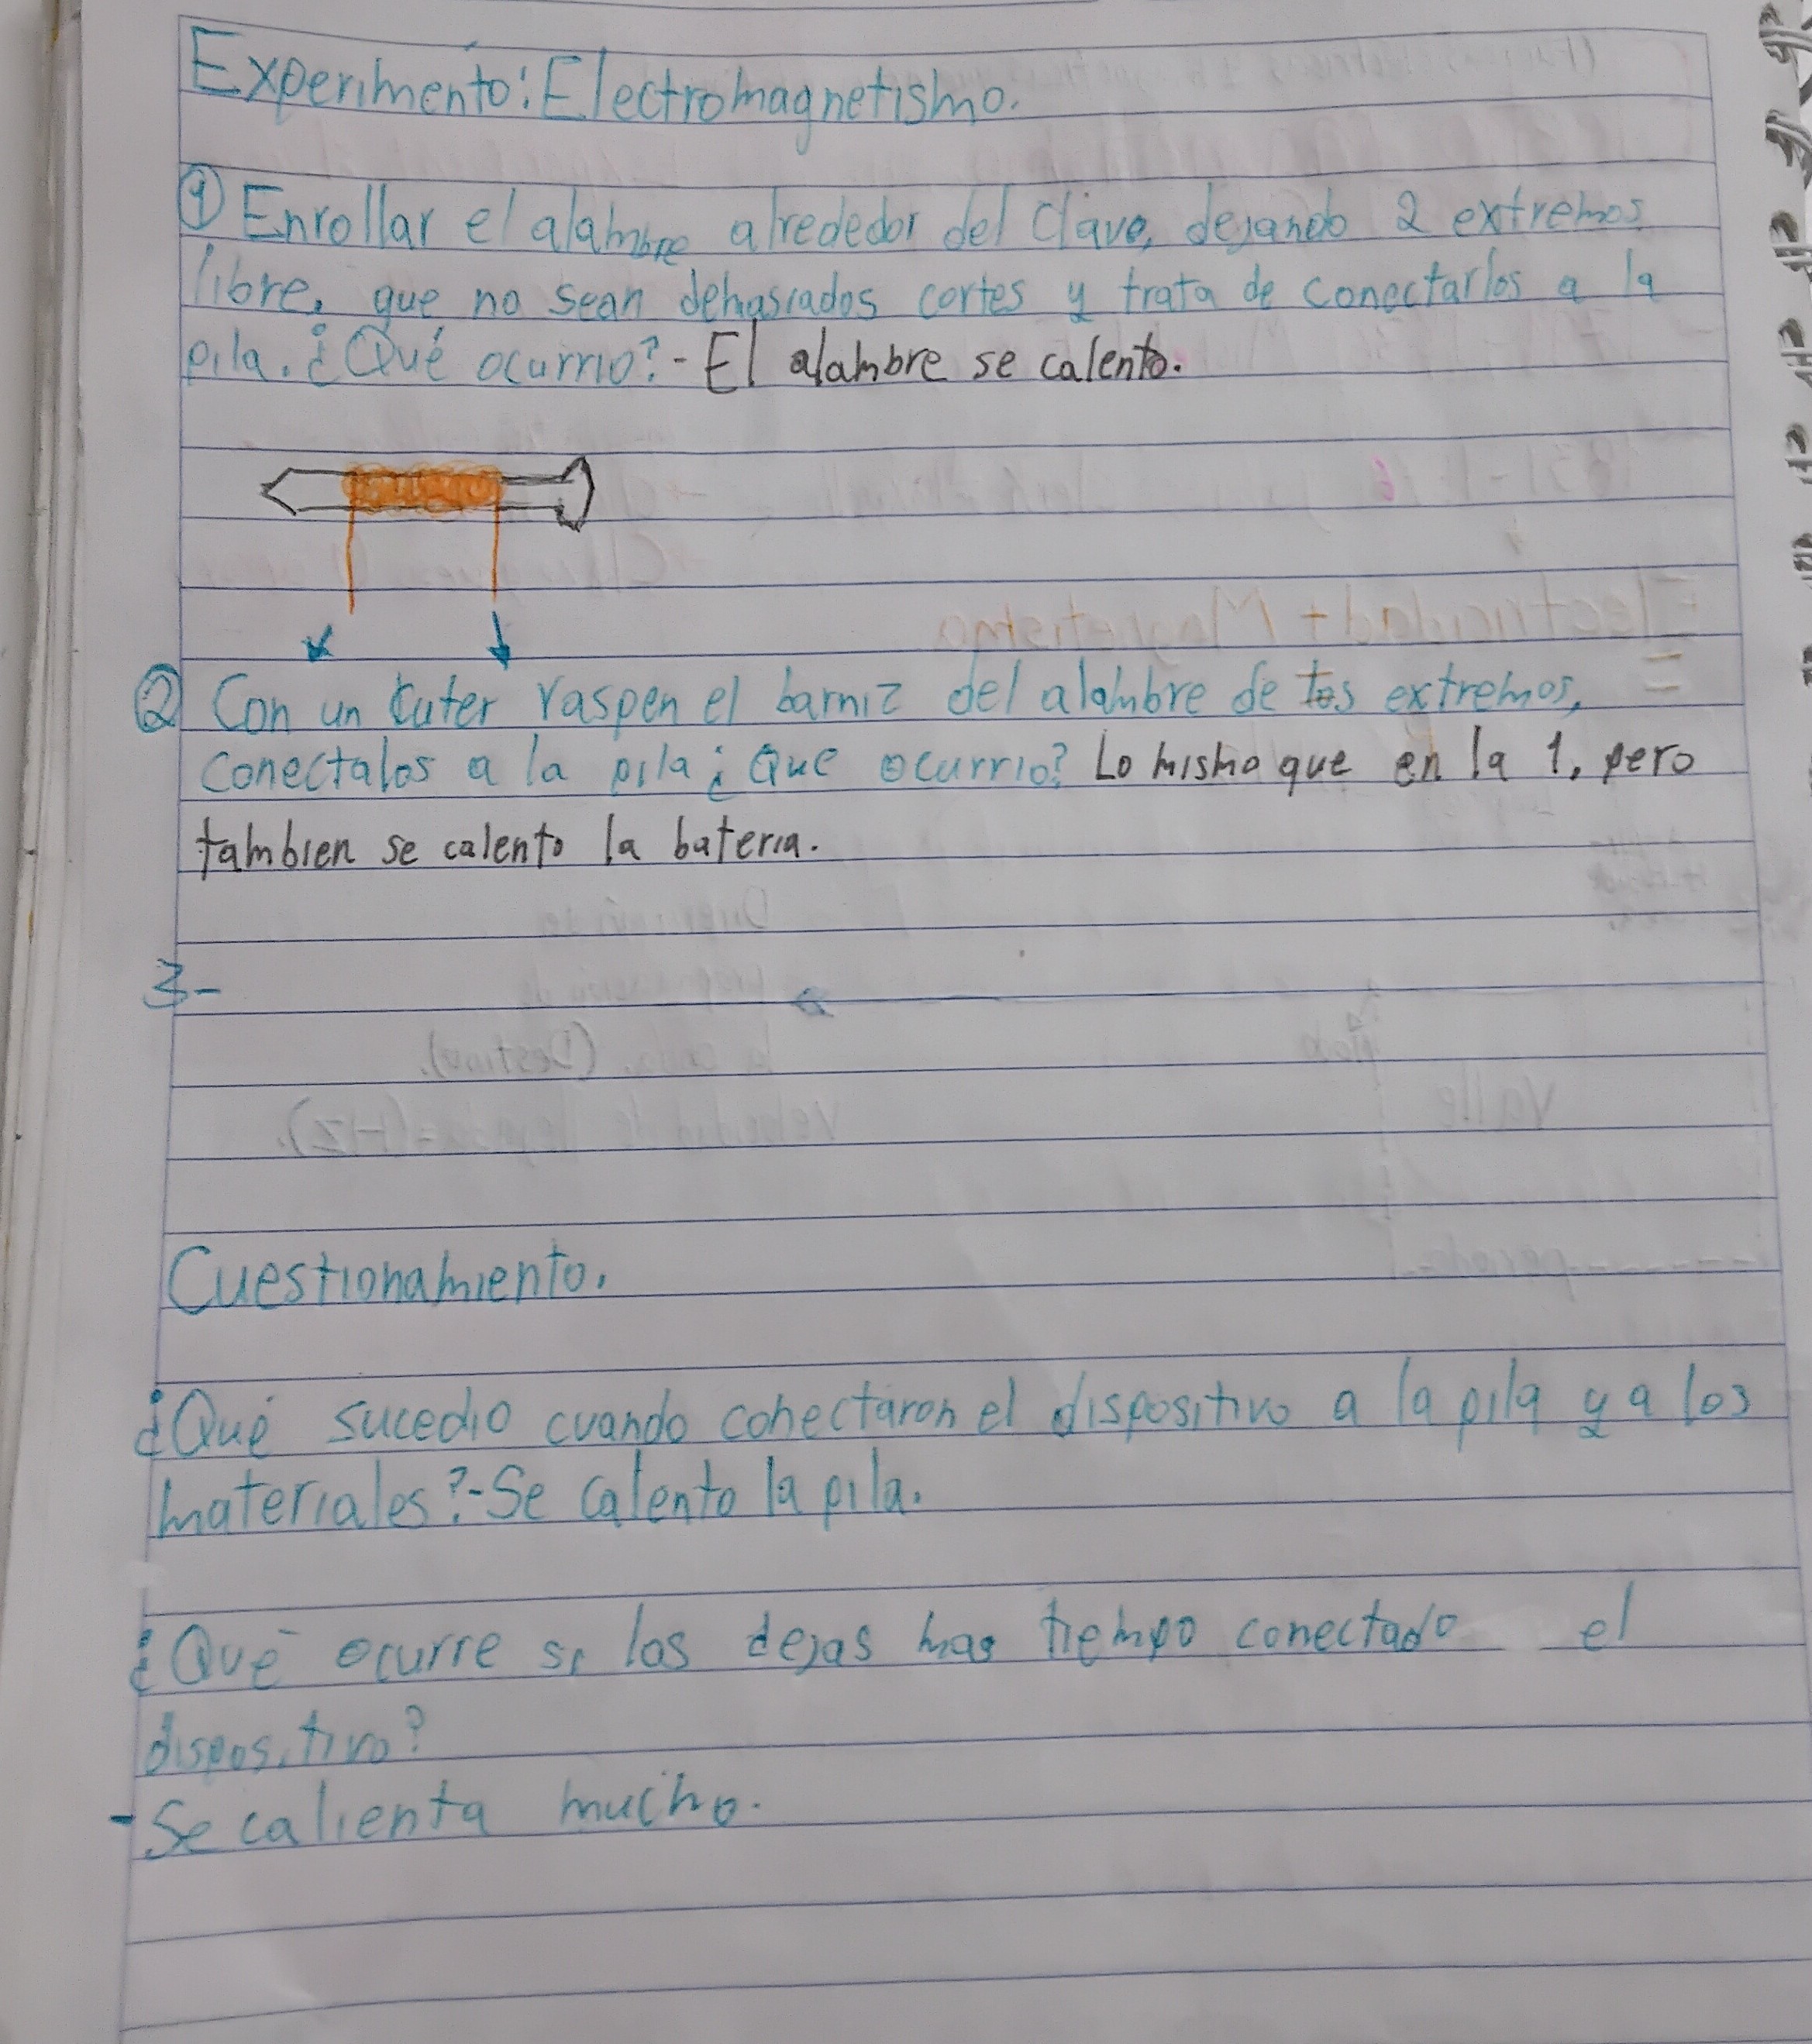 Experimento: Electromagnetismo.
① Enrollar el alambre alrededor del clavo, dejando 2 extremos
libre, que no sean demasiados cortes y trata de conectarlos a la
pila. ¿Qué ocurrio? - El alambre se calento.
② Con un cuter raspen el barniz del alambre de los extremos,
conectalos a la pila ¿Que ocurrio? Lo mismo que en la 1, pero
tambien se calento la bateria.
3-
Cuestionamiento.
¿Qué sucedio cuando conectaron el dispositivo a la pila y a los
materiales? - Se calento la pila.
¿Qué ocurre si los dejas mas tiempo conectado el
dispositivo?
- Se calienta mucho.